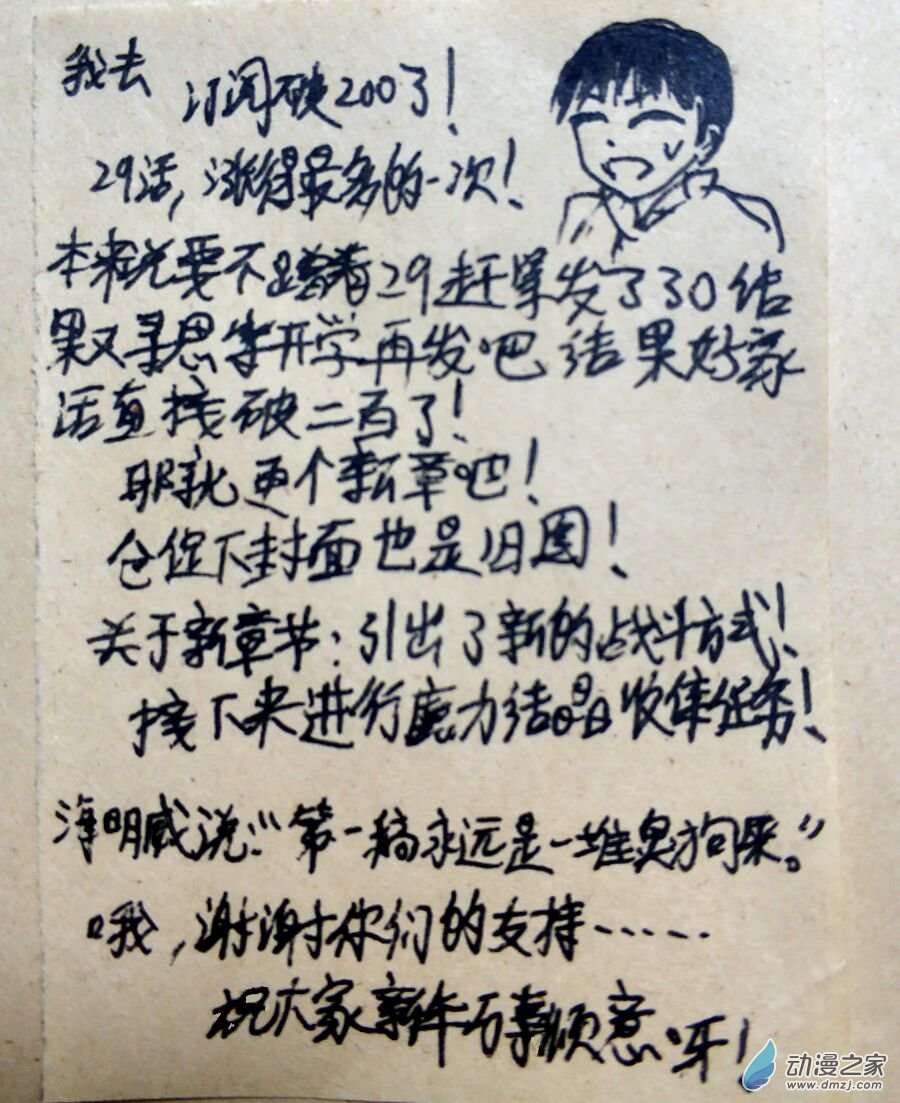 我去
订阅破200了！
29话，涨得最多的一次！
本来说要不蹭着29赶紧发了30结
果又寻思等开学再发吧结果好家
活直接破二百了！
那就更个新章吧！
仓促下封面也是旧图！
关于新章节：引出了新的战斗方式！
接下来进行魔力结晶收集任务！
海明威说："第一稿永远是一堆臭狗屎。"
哦，谢谢你们的支持……
祝大家新年万事顺意呀！
动漫之家
www.dmzj.com